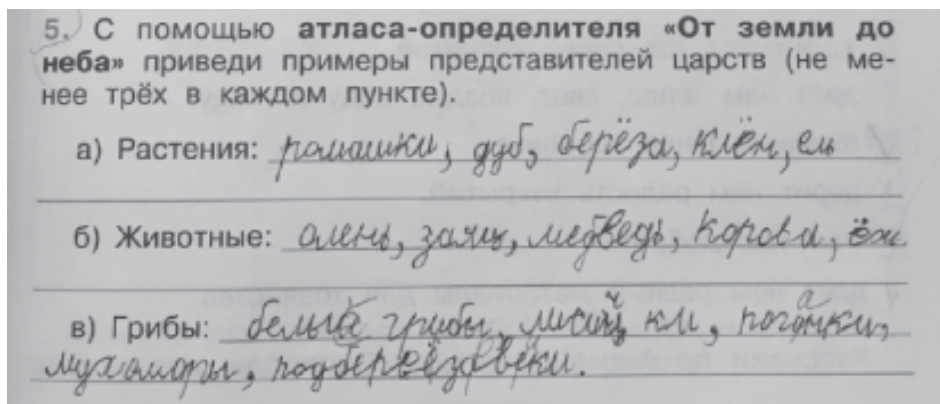 5. С помощью атласа-определителя «От земли до
неба» приведи примеры представителей царств (не ме-
нее трёх в каждом пункте).
а) Растения: ромашки, дуб, берёза, клён, ель
б) Животные: олень, заяц, медведь, корова, ёж
в) Грибы: белые грибы, лисички, поганки,
мухоморы, подберёзовики.